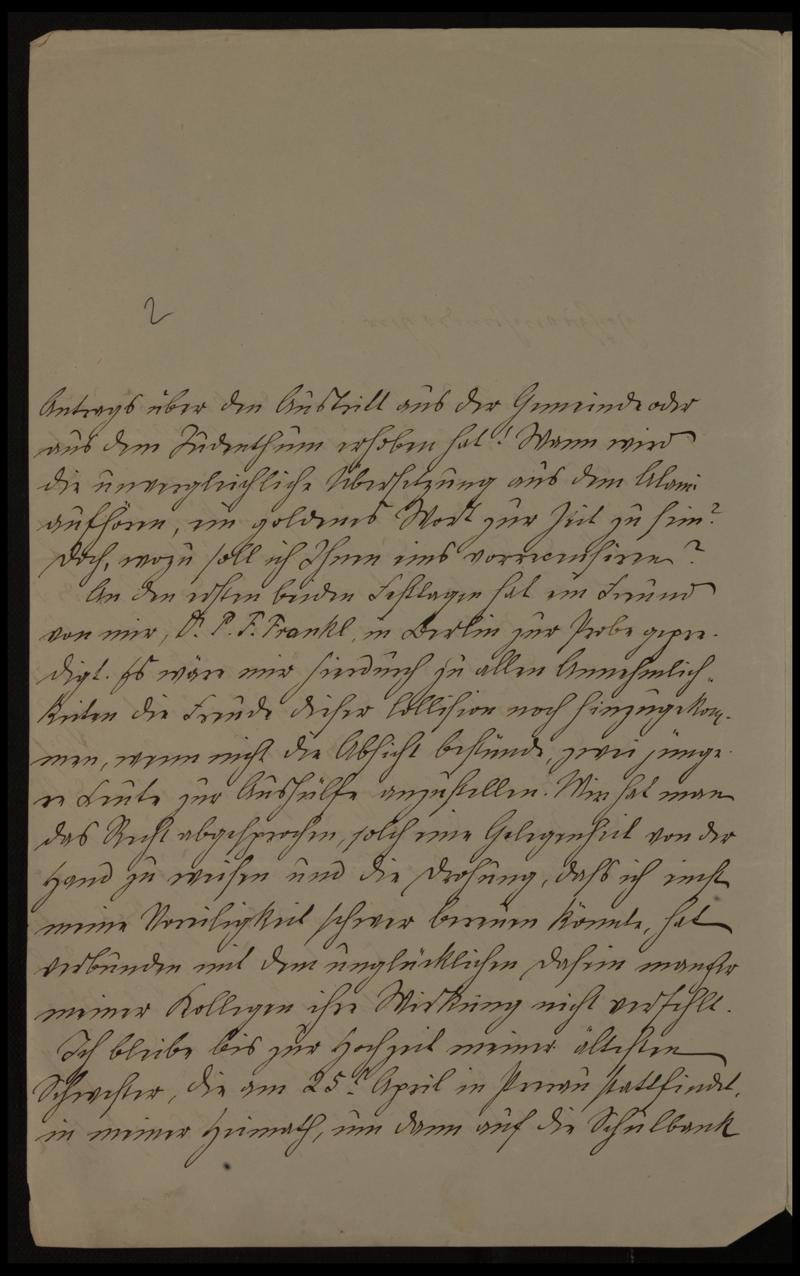 2
Antrags über den Austritt aus der Gemeinde oder
aus dem Judenthum erhoben hat! Wann wird
die unvergleichliche Übersetzung aus dem Alami
aufhören, ein goldenes Wort zur Zeit zu sein?
Doch, wozu soll ich Ihnen eins vorrecensiren?
An den ersten beiden Festtagen hat ein Freund
von mir, Dr. P. F. Frankl, in Berlin zur Probe gepre-
digt. Es wäre mir hierdurch zu allen Annehmlich-
keiten die Freude dieser Collision noch hinzugekom-
men, wenn nicht die Absicht bestünde, zwei jünge-
re Leute zur Aushülfe anzustellen. Mir hat man
das Recht abgesprochen, solch eine Gelegenheit von der
Hand zu weisen und die Drohung, daß ich einst
meine Voreiligkeit schwer bereuen könnte, hat
verbunden mit dem unglücklichen Dasein mancher
meiner Kollegen ihre Wirkung nicht verfehlt.
Ich bleibe bis zur Hochzeit meiner ältesten
Schwester, die am 25t April in Prerau stattfindet,
in meiner Heimath, um dann auf die Schulbank